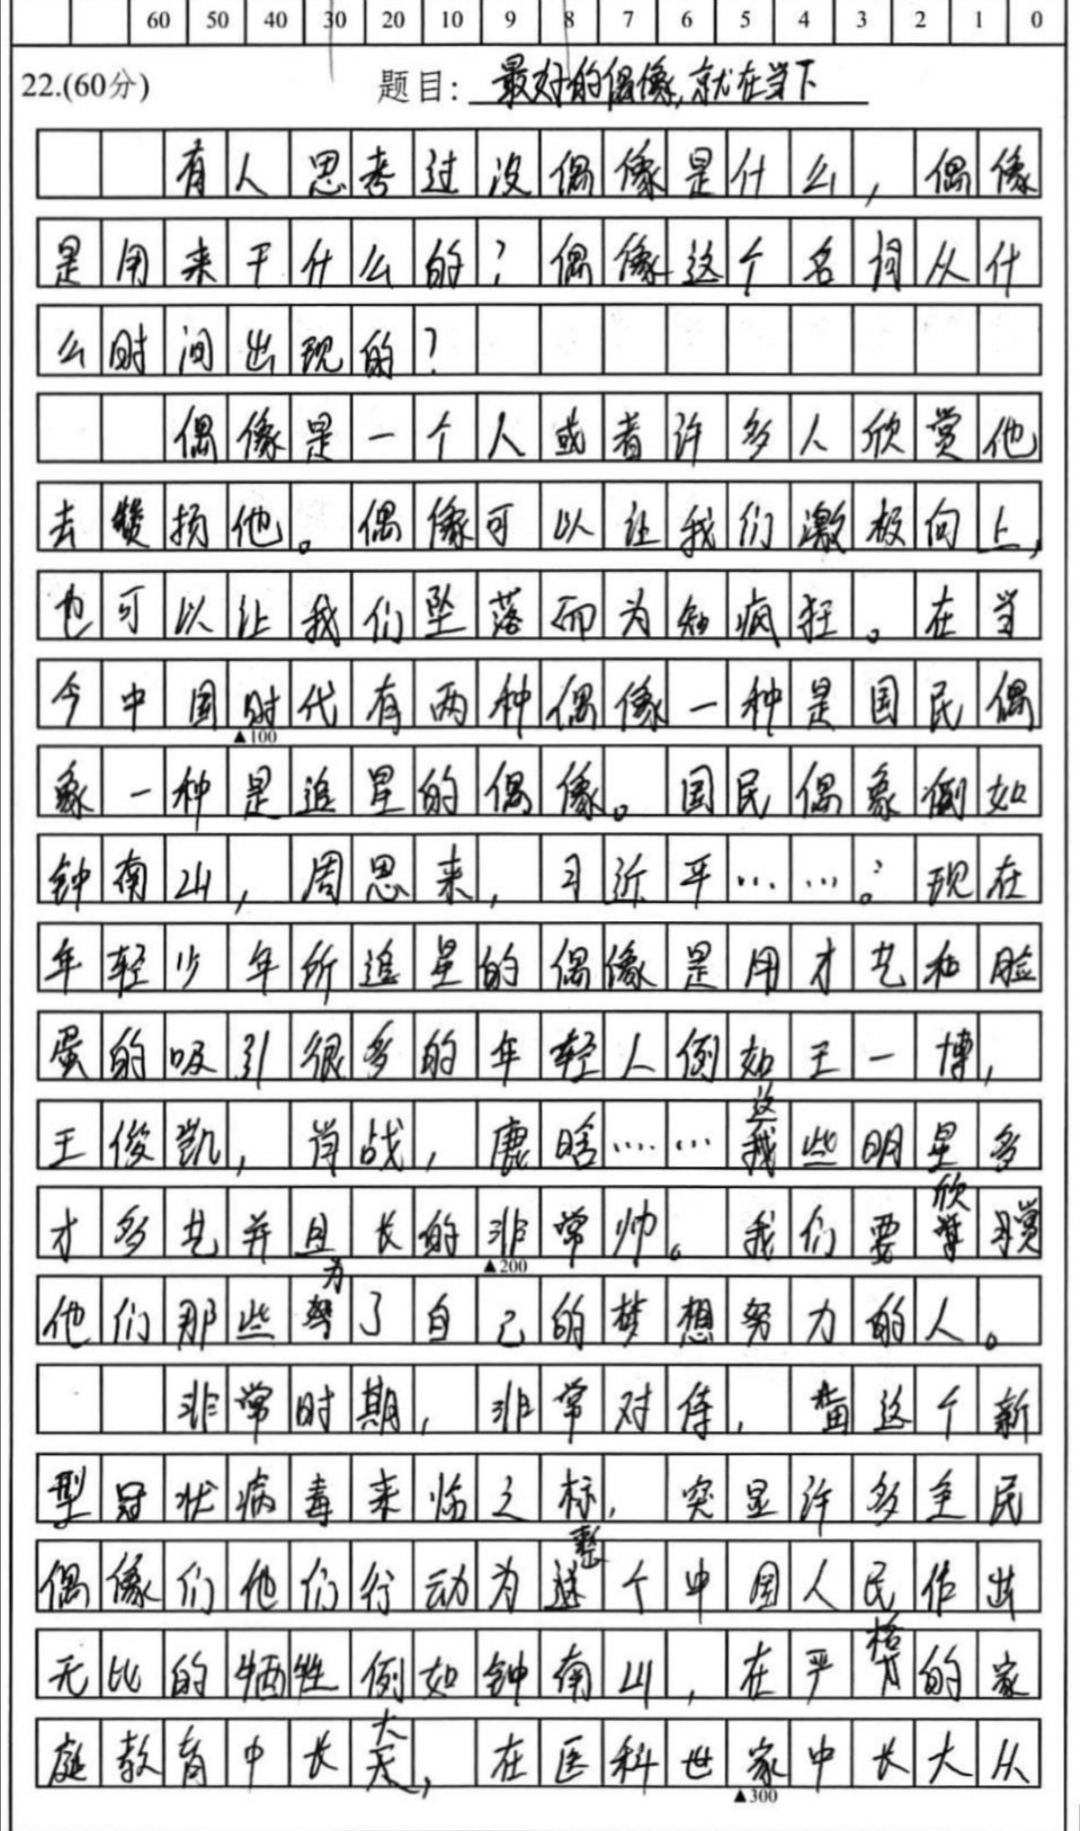 60 50 40 30 20 10 9 8 7 6 5 4 3 2 1 0
22.(60分) 题目: 最好的偶像,就在当下
有人思考过没偶像是什么,偶像
是用来干什么的?偶像这个名词从什
么时间出现的?
偶像是一个人或者许多人欣赏他
去赞扬他。偶像可以让我们激极向上,
也可以让我们坠落而为疯狂。在当
今中国时代有两种偶像一种是国民偶
▲100
象一种是追星的偶像。国民偶象例如
钟南山,周恩来,习近平……。现在
年轻少年所追星的偶像是用才艺和脸
蛋的吸引很多的年轻人例如王一博,
王俊凯,肖战,鹿晗……这些明星多
才多艺并且长的非常帅。我们要欣赏
▲200
他们那些为了自己的梦想努力的人。
非常时期,非常对待,当这个新
型冠状病毒来临之际,突显许多全民
偶像们他们行动为整个中国人民作出
无比的牺牲例如钟南山,在严格的家
庭教育中长大,在医科世家中长大从
▲300